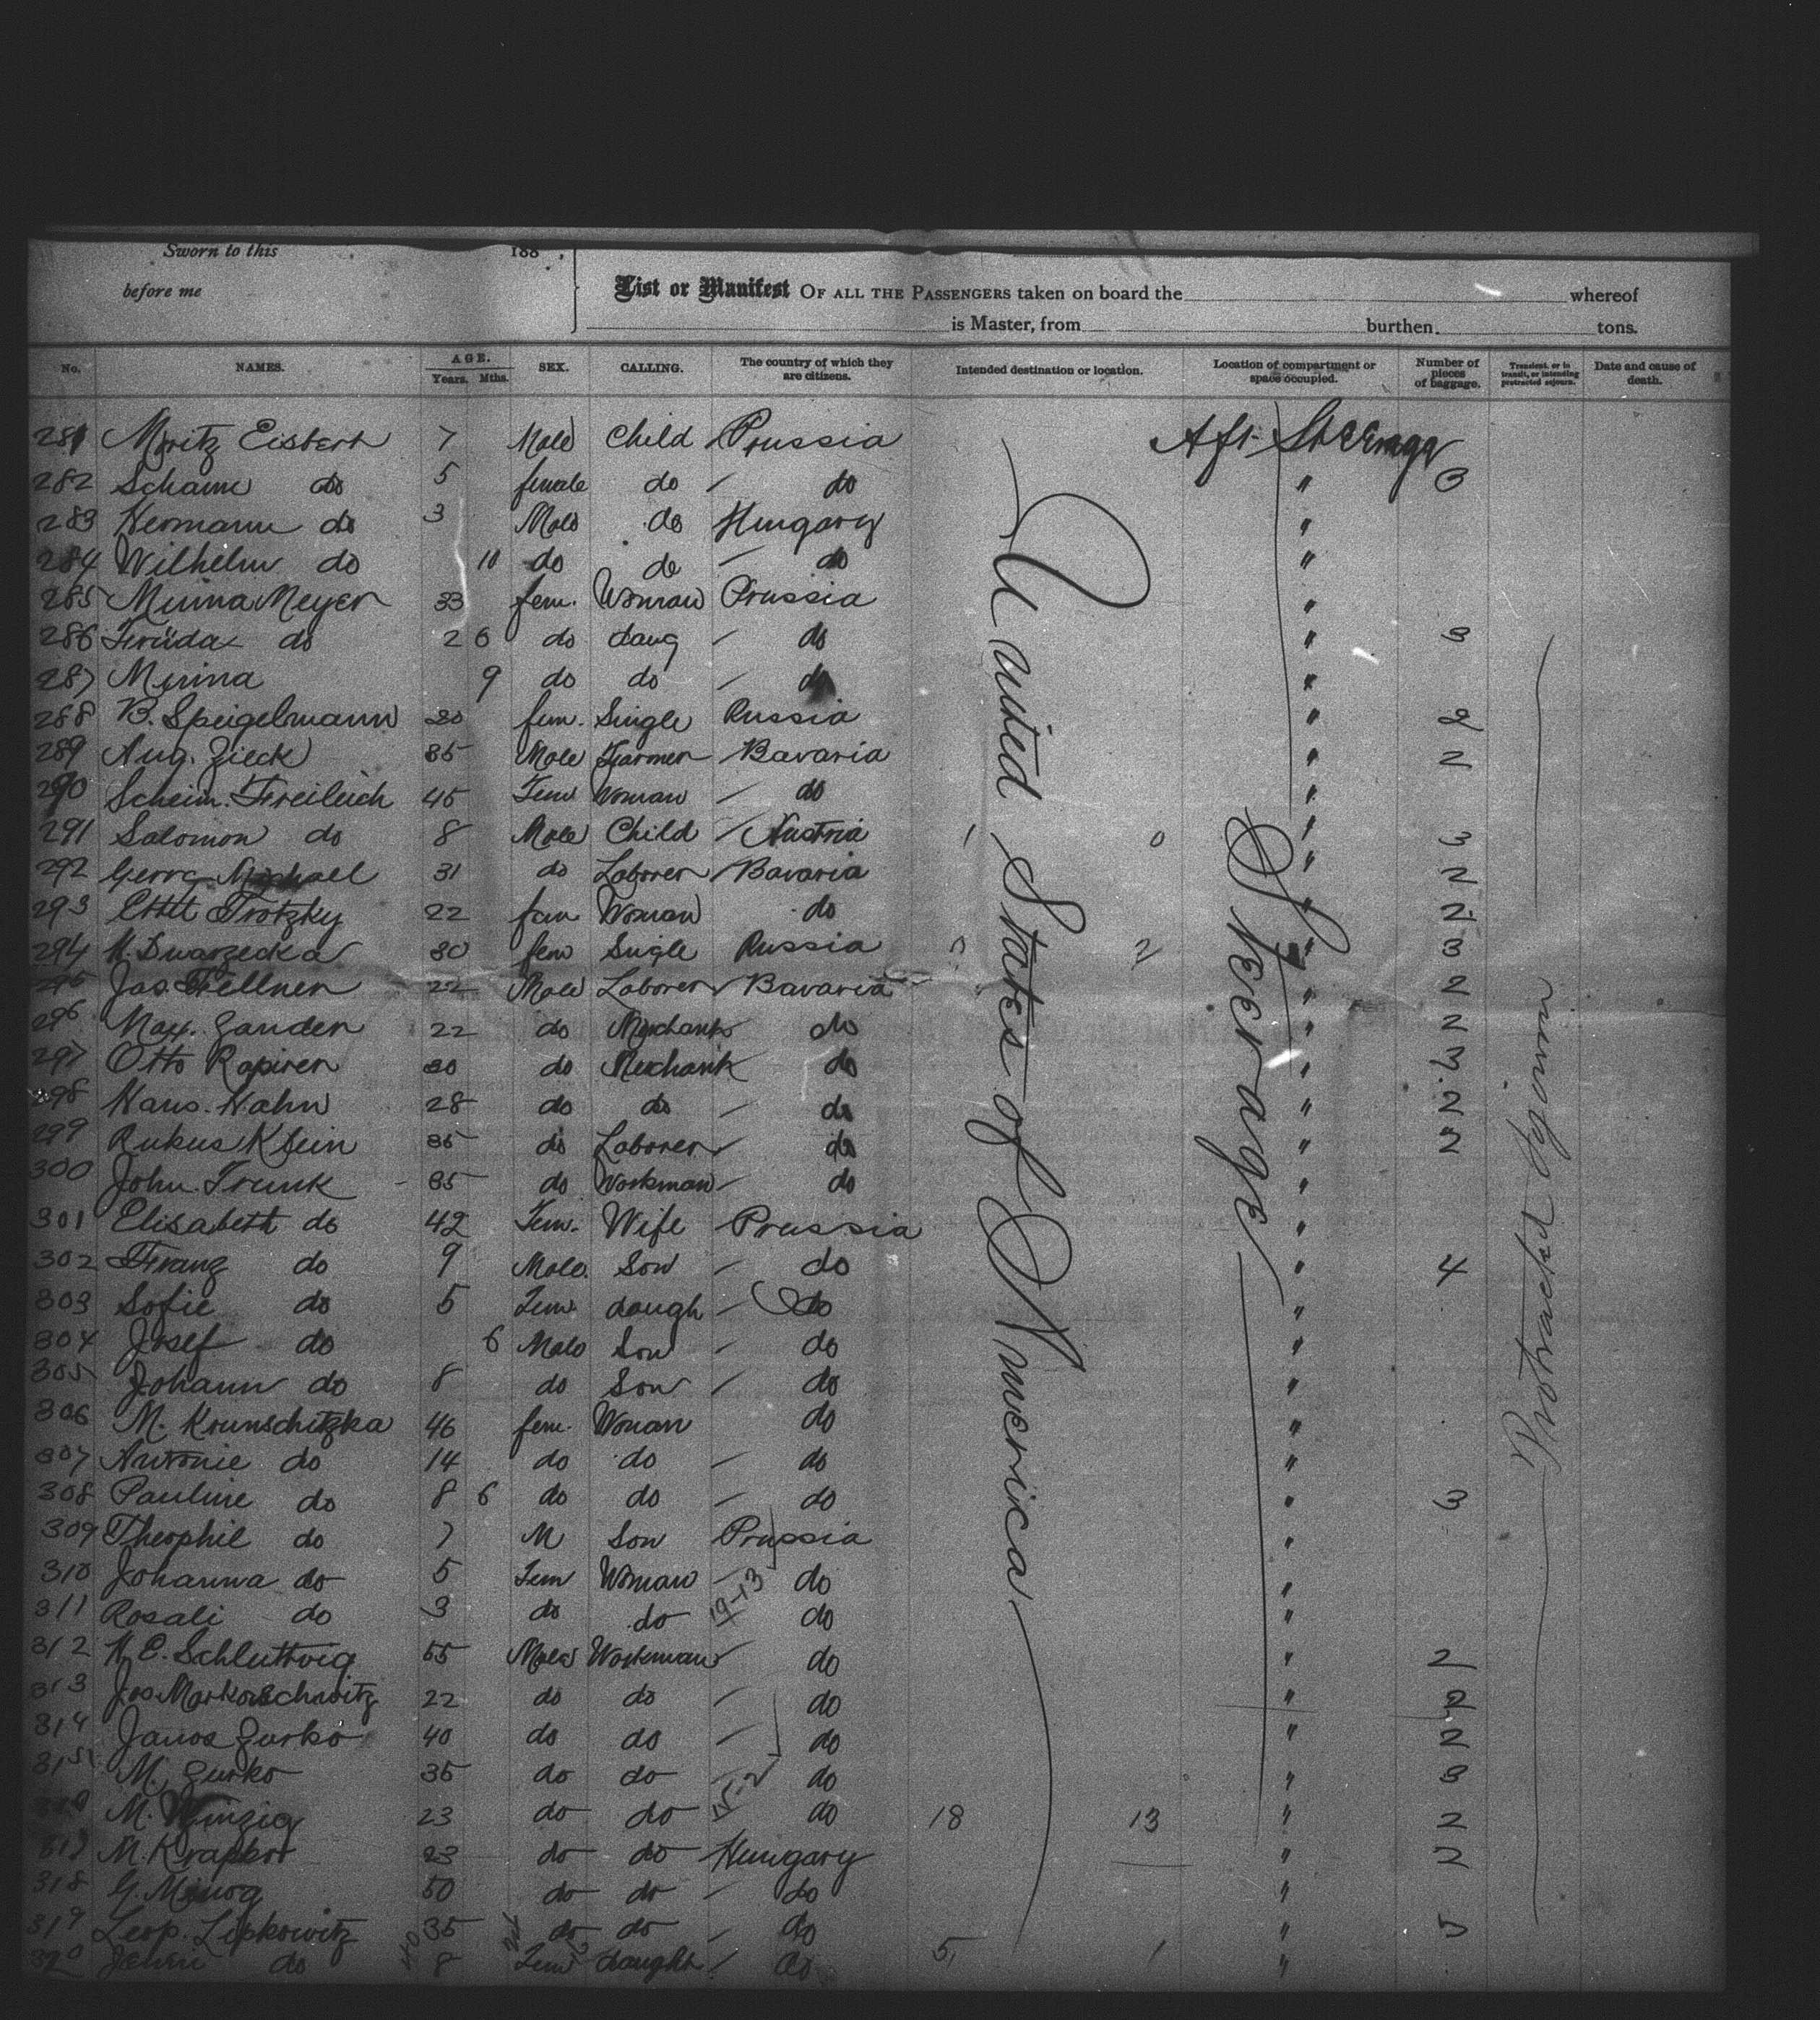 Sworn to this 188 .
before me
List or Manifest OF ALL THE PASSENGERS taken on board the whereof
is Master, from burthen. tons.
No. NAMES. AGE. Years. Mths. SEX. CALLING. The country of which they are citizens. Intended destination or location. Location of compartment or space occupied. Number of pieces of baggage. Transient, or in transit, or intending protracted sojourn. Date and cause of death.
281 Moritz Eisbert 7 Male Child Prussia Aft Steerage
282 do 5 female do do " 3
283 Hermann do 3 Male do Hungary "
284 Wilhelm do 10 do do do "
285 Minna Meyer 33 fem. Woman Prussia "
286 Früda do 2 6 do daug do " 3
287 Minna 9 do do do "
288 B. Speigelmann 20 fem. Single Russia " 2
289 Aug. Zieck 35 Male Farmer Bavaria " 2
290 Schein. Freileich 45 Fem Woman do "
291 Salomon do 8 Male Child Austria 1 0 " 3
292 Michael 31 do Laborer Bavaria " 2
293 Trotzky 22 fem Woman do " 2
294 M. Dwarzecka 30 fem Single Russia 2 " 3
295 Jos. Fellner 22 Male Laborer Bavaria " 2
296 Max. Zander 22 do Merchant do " 2
297 Otto Rapirer 30 do Mechanik do " 3
298 Hans. Hahn 28 do do do " 2
299 Rukus Klein 35 do Laborer do " 2
300 John. Trunk 35 do Workman do "
301 Elisabeth do 42 Fem. Wife Prussia "
302 Franz do 9 Male. Son do " 4
303 Sofie do 5 Fem daugh do "
304 Josef do 6 Male Son do "
305 Johann do 8 do Son do "
306 M. Krunschitzka 46 fem. Woman do "
307 Antonie do 14 do do do "
308 Pauline do 8 6 do do do " 3
309 Theophil do 7 M Son Prussia "
310 Johanna do 5 Fem Woman do "
311 Rosali do 3 do do do "
19-13
312 Schluttvig 55 Male Workman do " 2
313 Jos. Markorschwitz 22 do do do " 2
314 Janos Zurko 40 do do do " 2
315 M. Zurko 35 do do do " 3
M. Winzig 23 do do do 18 13 " 2
M. Krapkor 23 do do Hungary " 2
318 G. 50 do do do "
319 Leop. Lipkowitz 35 do do do " 3
320 do 8 Fem daught do 5 1 "
United States of America
Steerage
Protracted Sojourn